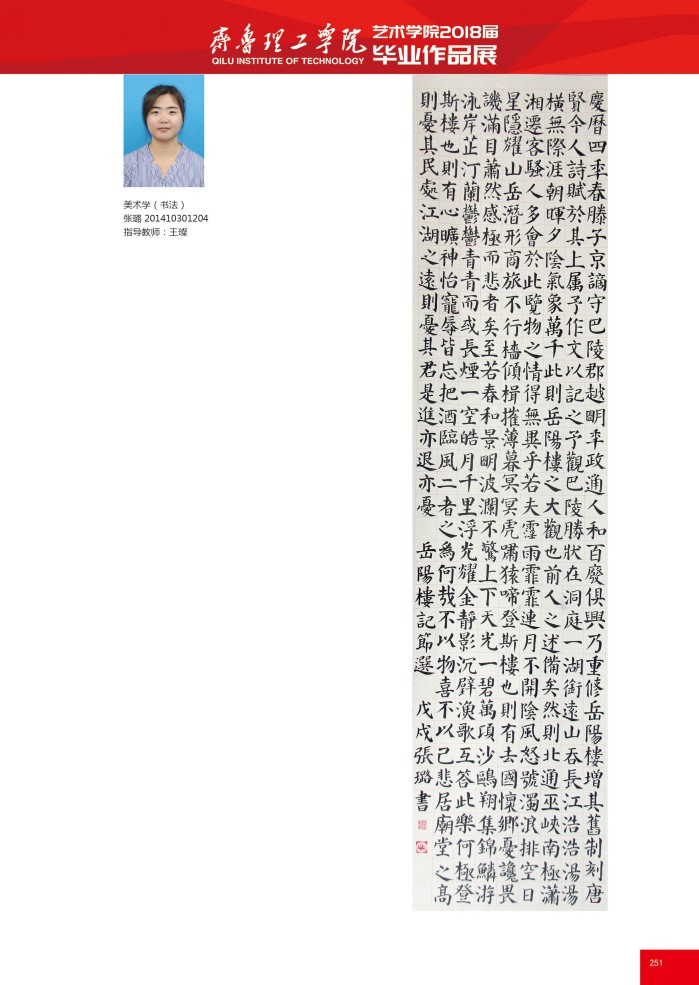 齐鲁理工学院
QILU INSTITUTE OF TECHNOLOGY
艺术学院2018届
毕业作品展
美术学（书法）
张璐 201410301204
指导教师：王璨
慶曆四年春滕子京謫守巴陵郡越明年政通人和百廢俱興乃重修岳陽樓增其舊制刻唐
賢今人詩賦於其上属予作文以記之予觀巴陵勝狀在洞庭一湖銜遠山吞長江浩浩湯湯
橫無際涯朝暉夕陰氣象萬千此則岳陽樓之大觀也前人之述備矣然則北通巫峽南極瀟
湘遷客騷人多會於此覽物之情得無異乎若夫霪雨霏霏連月不開陰風怒號濁浪排空日
星隱耀山岳潛形商旅不行檣傾楫摧薄暮冥冥虎嘯猿啼登斯樓也則有去國懷鄉憂讒畏
譏滿目蕭然感極而悲者矣至若春和景明波瀾不驚上下天光一碧萬項沙鷗翔集錦鱗游
泳岸芷汀蘭鬱鬱青青而或長煙一空皓月千里浮光耀金靜影沉璧漁歌互答此樂何極登
斯樓也則有心曠神怡寵辱皆忘把酒臨風二者之為何哉不以物喜不以己悲居廟堂之高
則憂其民處江湖之遠則憂其君是進亦退亦憂 岳陽樓記節選 戊戌張璐書
251